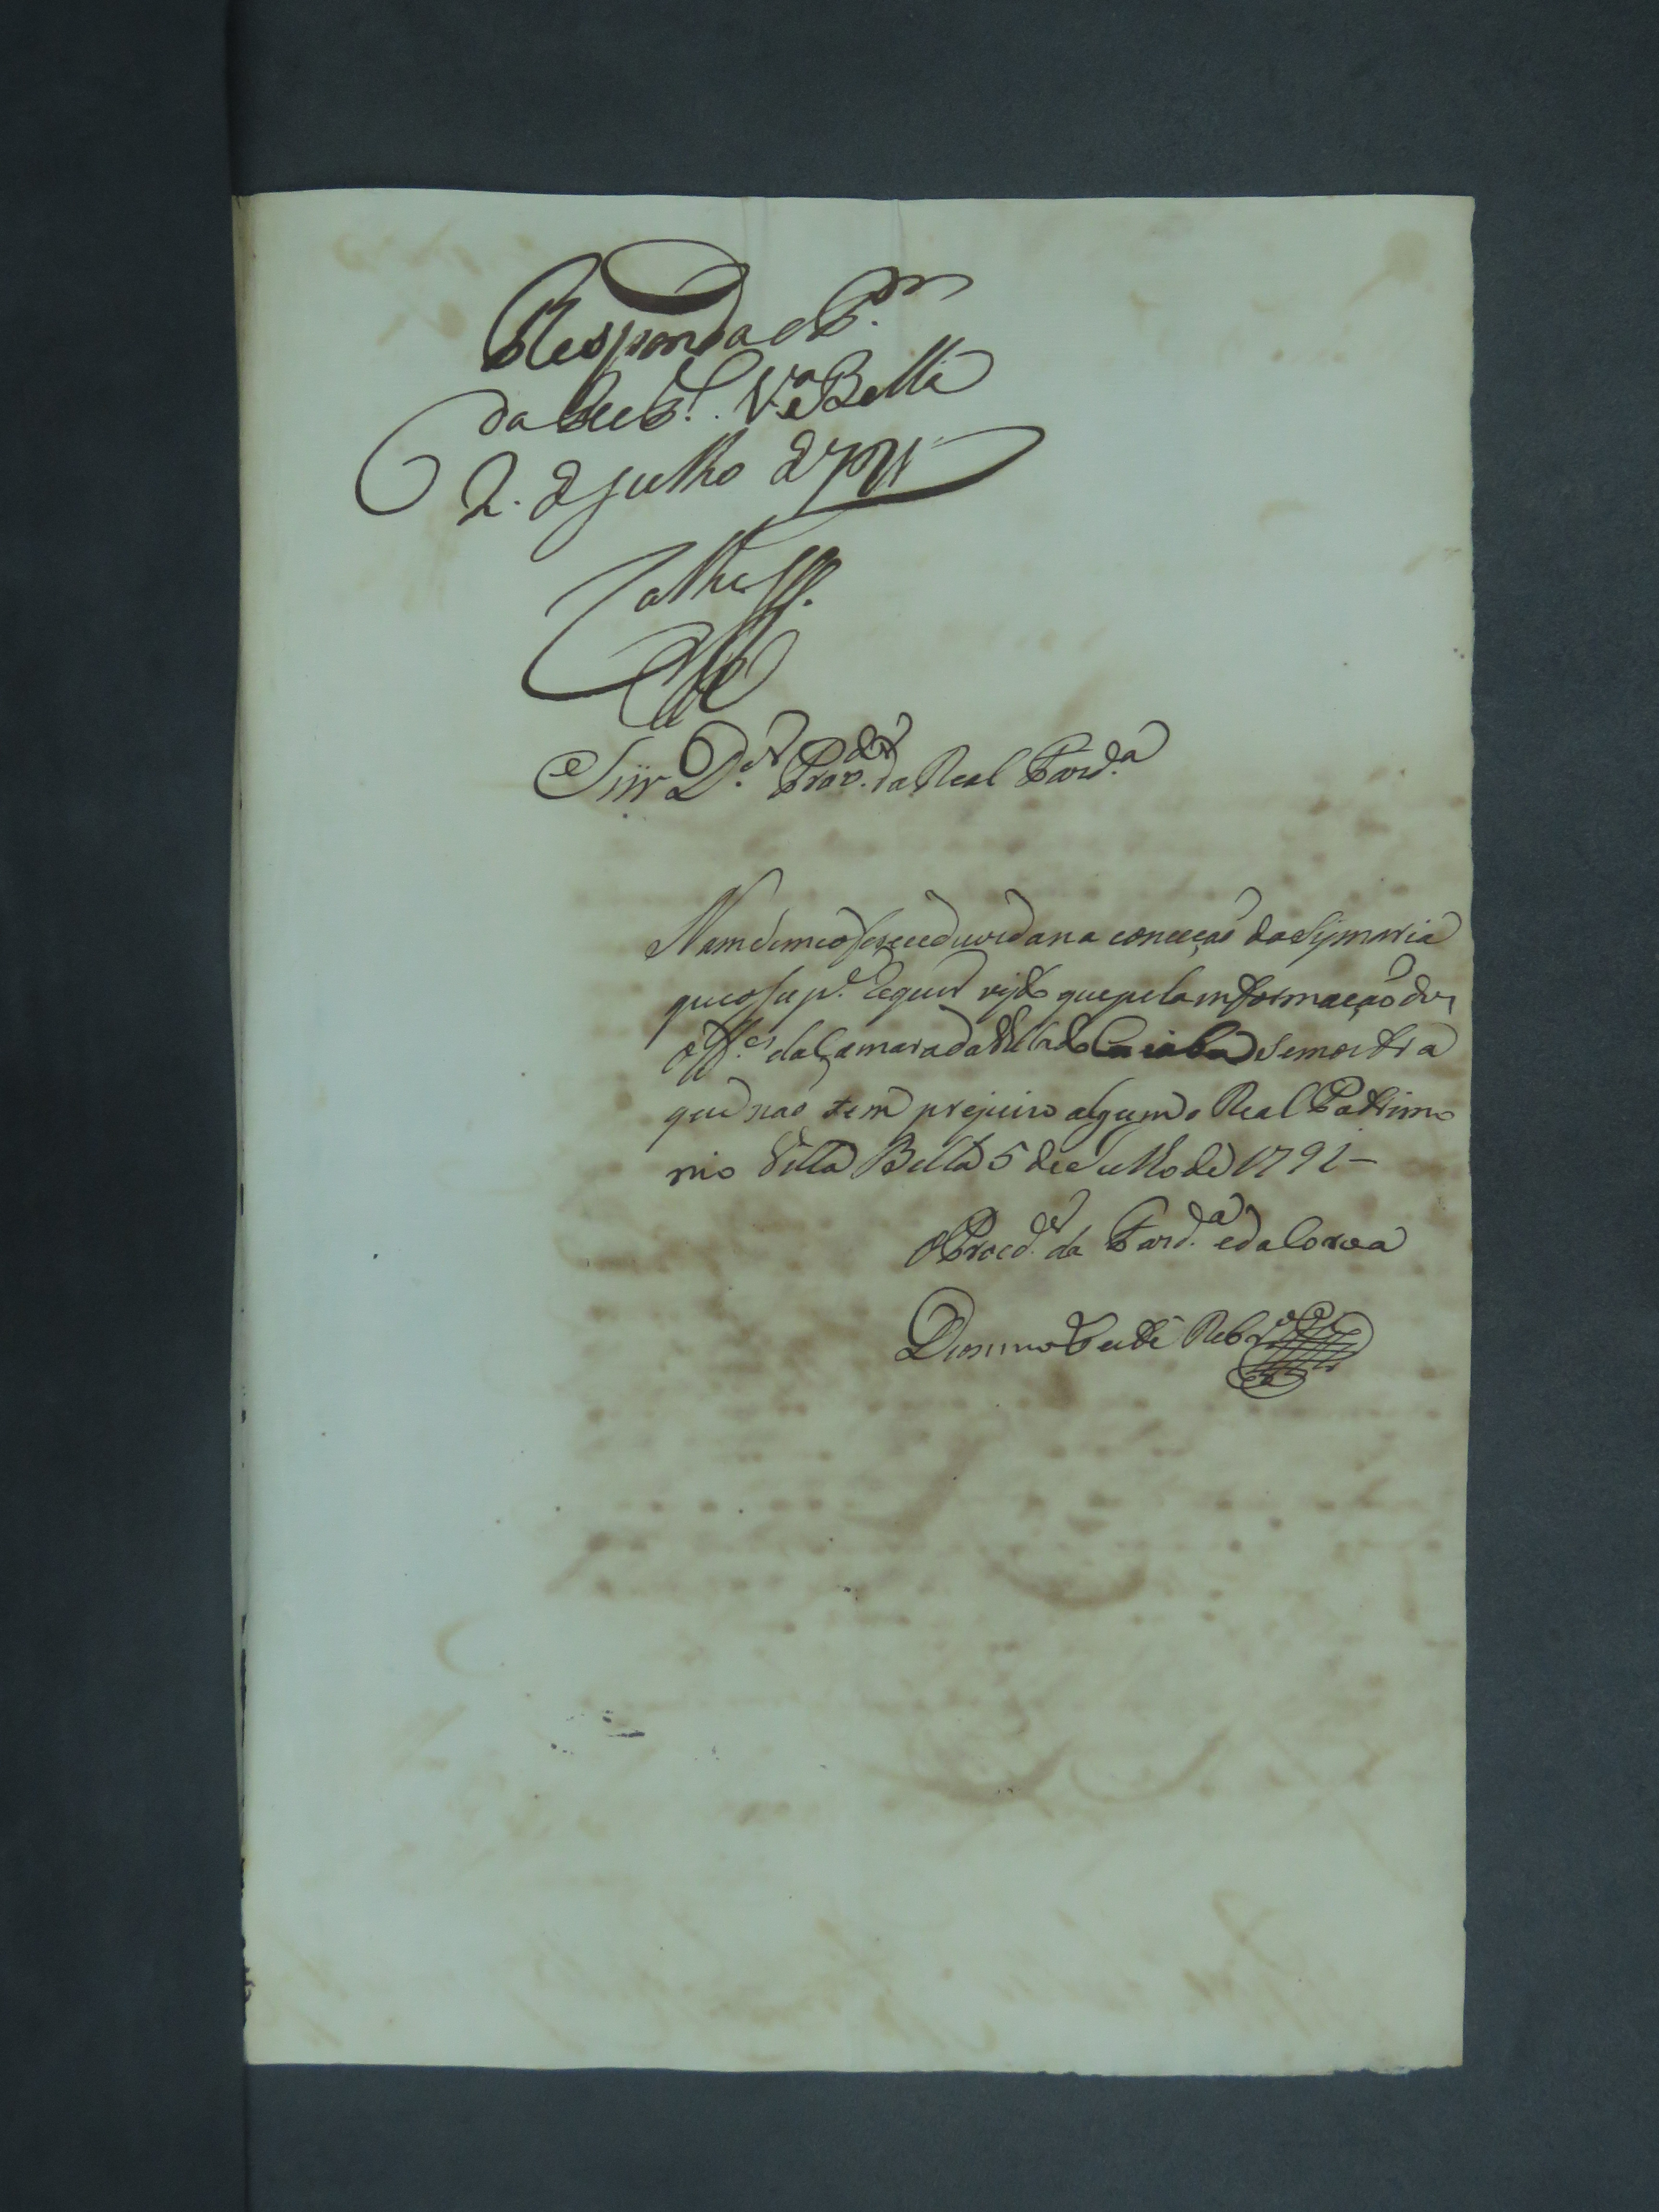 Responda o P.or
da Fee P.l V.a Bella
2. de Julho de 791
Snr D.or Prov.dor da Real Fazd.a
Nam se me oferece duvida na conceçaõ da Sysmaria
que o Sup.e Requer visto que pela informaçaõ dos
Off.es da Camara da Villa do Cuiaba se mostra
que naõ tem prejuizo algum o Real Patrimo
nio Villa Bella 5 de Julho de 1791 –
O Procd.or da Fazd.a e da Coroa